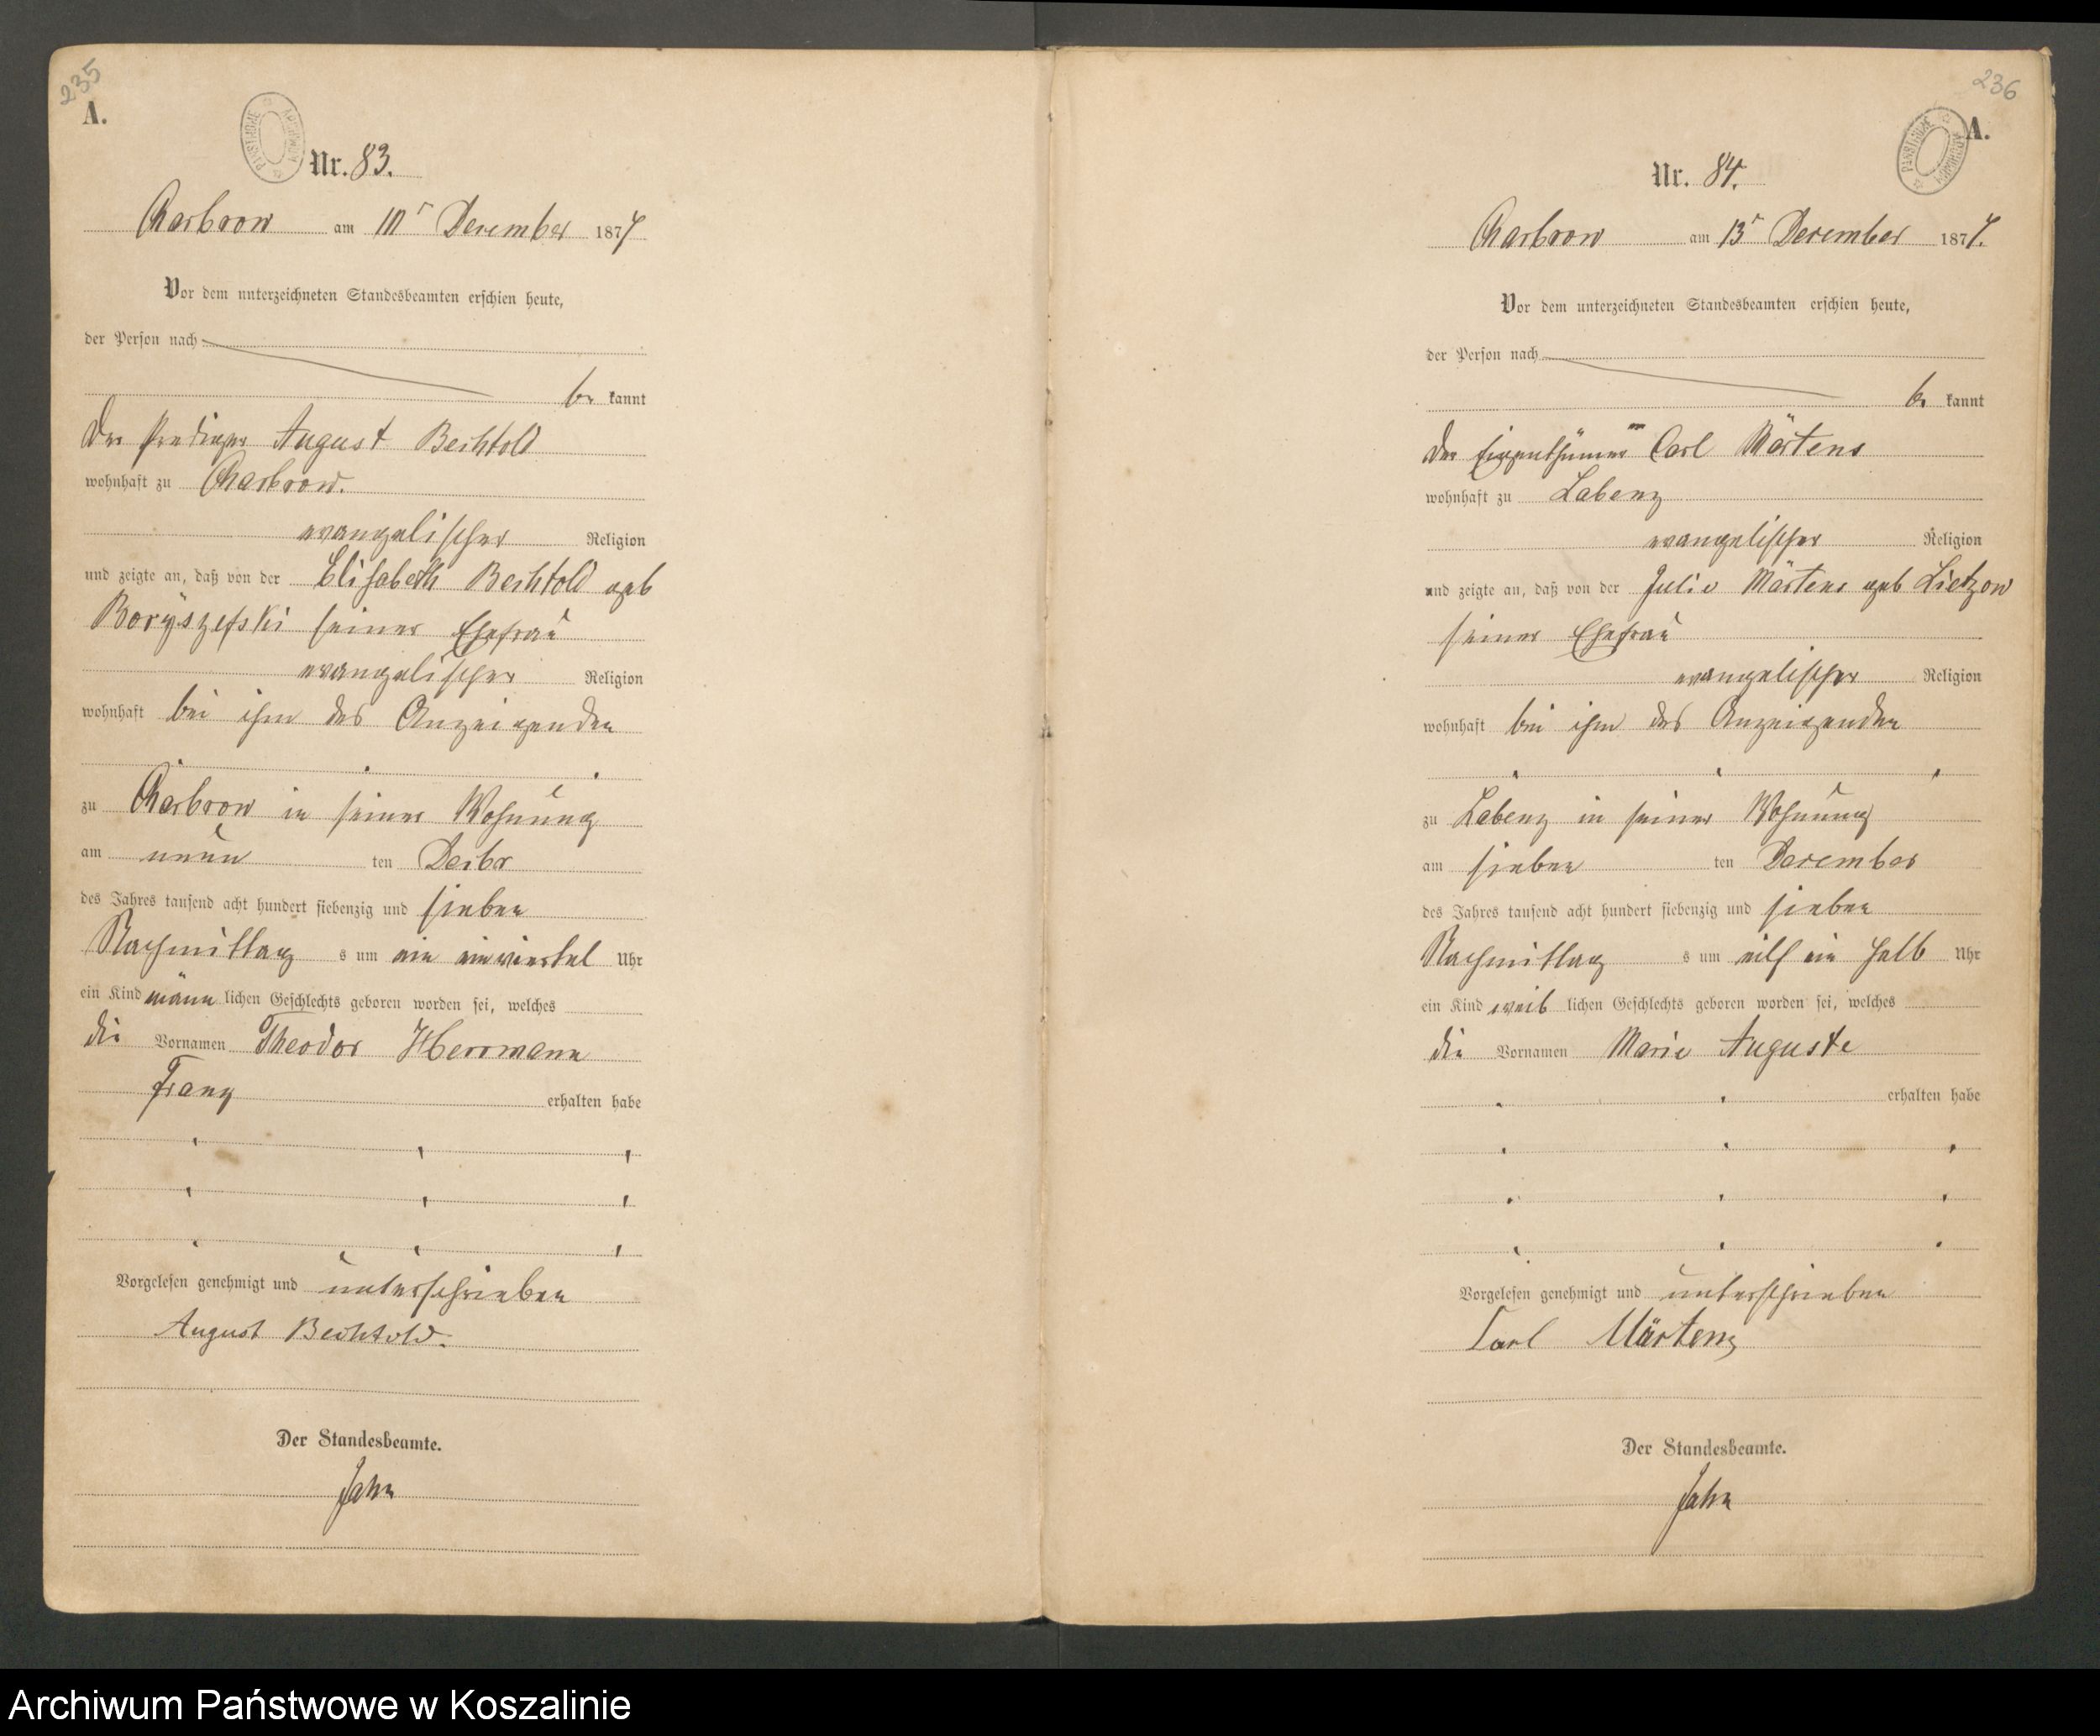 235
A.
Nr. 83.
Charbrow am 10ᵗ December 1877
Vor dem unterzeichneten Standesbeamten erschien heute,
der Person nach
be kannt
Der Prediger August Bechtold
wohnhaft zu Charbrow.
evangelischer Religion
und zeigte an, daß von der Elisabeth Bechtold geb
Boryszefski seiner Ehefrau
evangelischer Religion
wohnhaft bei ihm des Anzeigenden
zu Charbrow in seiner Wohnung
am neun ten Decbr
des Jahres tausend acht hundert siebenzig und sieben
Nachmittag s um ein einviertel Uhr
ein Kind männ lichen Geschlechts geboren worden sei, welches
die Vornamen Theodor Herrmann
Franz erhalten habe
Vorgelesen genehmigt und unterschrieben
August Bechtold.
Der Standesbeamte.
Jahn
236
A.
PAŃSTWOWE ARCHIWUM
Nr. 84.
Charbrow am 13ᵗ December 1877.
Vor dem unterzeichneten Standesbeamten erschien heute,
der Person nach
be kannt
Der Eigenthümer Carl Märtens
wohnhaft zu Labenz
evangelischer Religion
und zeigte an, daß von der Julie Märtens geb Lietzow
seiner Ehefrau
evangelischer Religion
wohnhaft bei ihm des Anzeigenden
zu Labenz in seiner Wohnung
am sieben ten December
des Jahres tausend acht hundert siebenzig und sieben
Nachmittag s um eilf ein halb Uhr
ein Kind weib lichen Geschlechts geboren worden sei, welches
die Vornamen Marie Auguste
erhalten habe
Vorgelesen genehmigt und unterschrieben
Carl Märtens
Der Standesbeamte.
Jahn
Archiwum Państwowe w Koszalinie